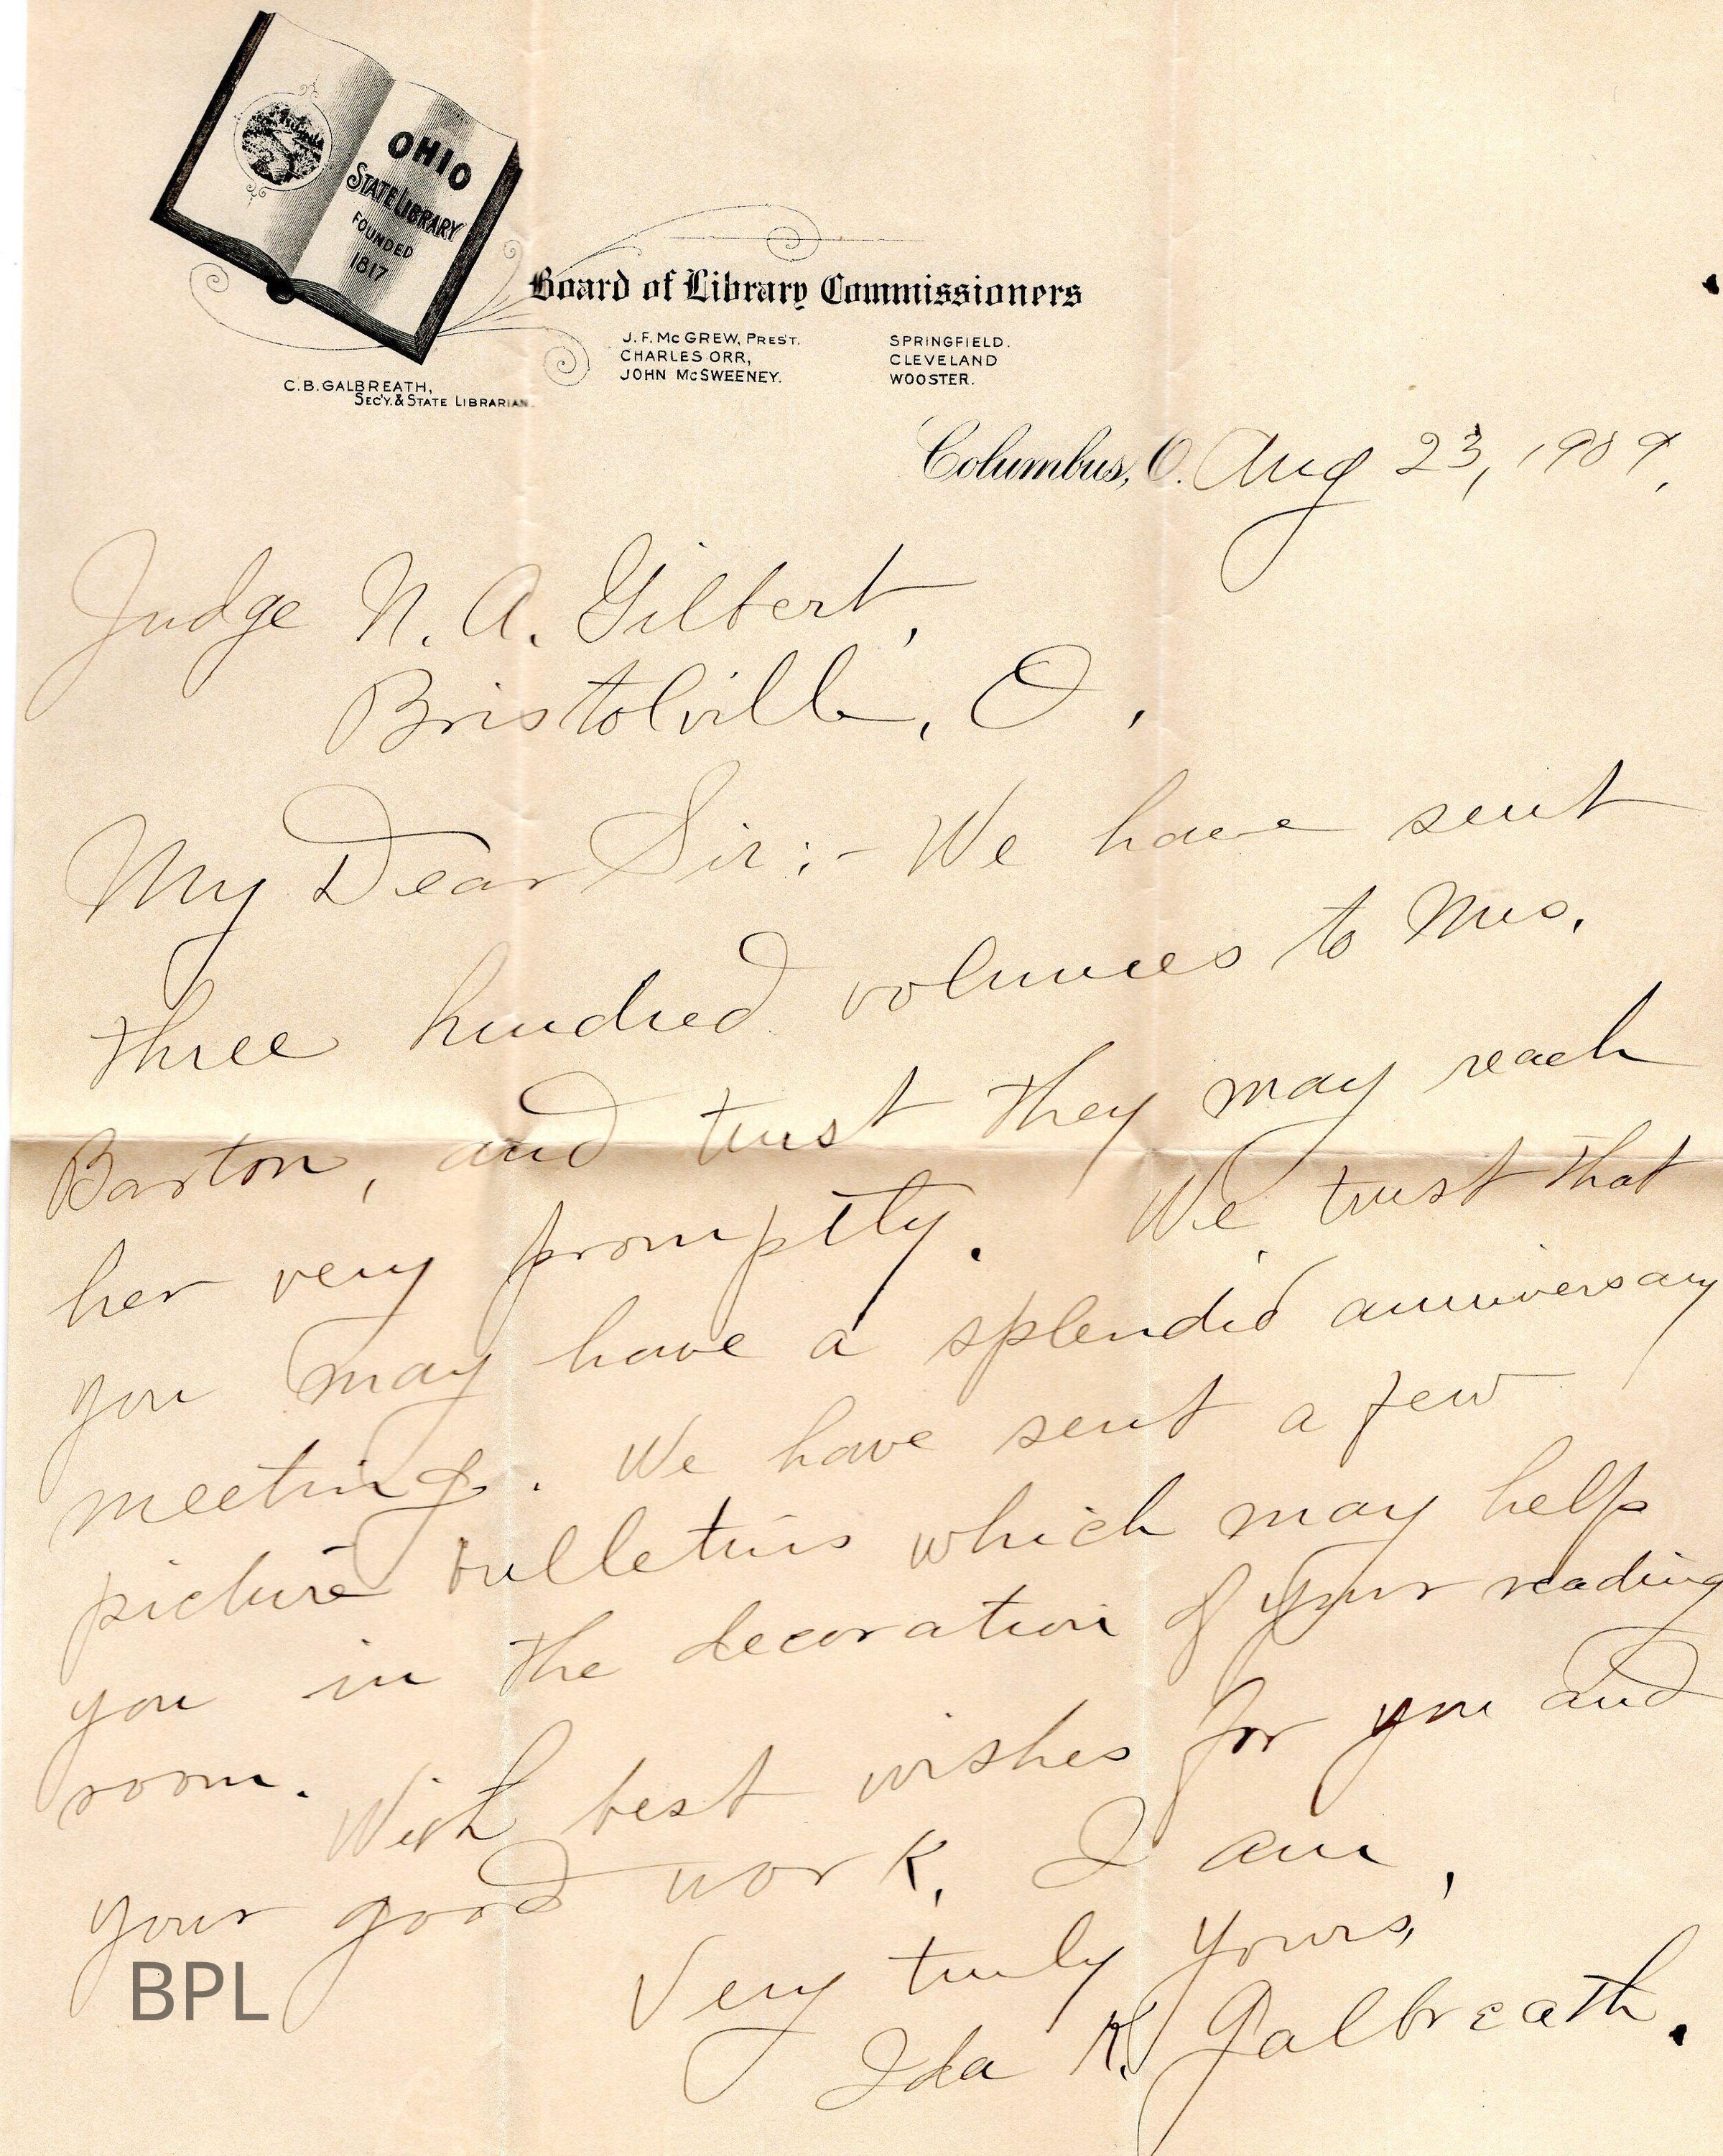 OHIO
STATE LIBRARY
FOUNDED
1817
Board of Library Commissioners
J. F. McGREW, PRES'T. SPRINGFIELD.
CHARLES ORR, CLEVELAND
JOHN McSWEENEY. WOOSTER.
C. B. GALBREATH,
SEC'Y. & STATE LIBRARIAN.
Columbus, O. Aug 23, 1909.
Judge N. A. Gilbert,
Bristolville, O.
My Dear Sir:- We have sent
three hundred volumes to Mrs.
Barton, and trust they may reach
her very promptly. We trust that
you may have a splendid anniversary
meeting. We have sent a few
picture bulletins which may help
you in the decoration of your reading
room.
With best wishes for you and
your good work, I am,
Very truly yours,
Ida K. Galbreath.
BPL